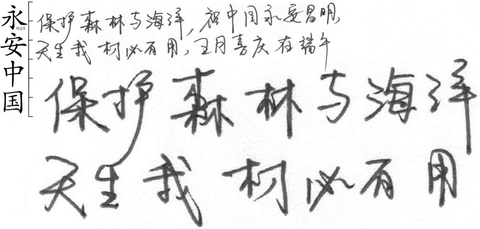 永安中国
保护森林与海洋,祝中国永安昌明,
天生我材必有用,五月喜庆在端午
保护森林与海洋
天生我材必有用